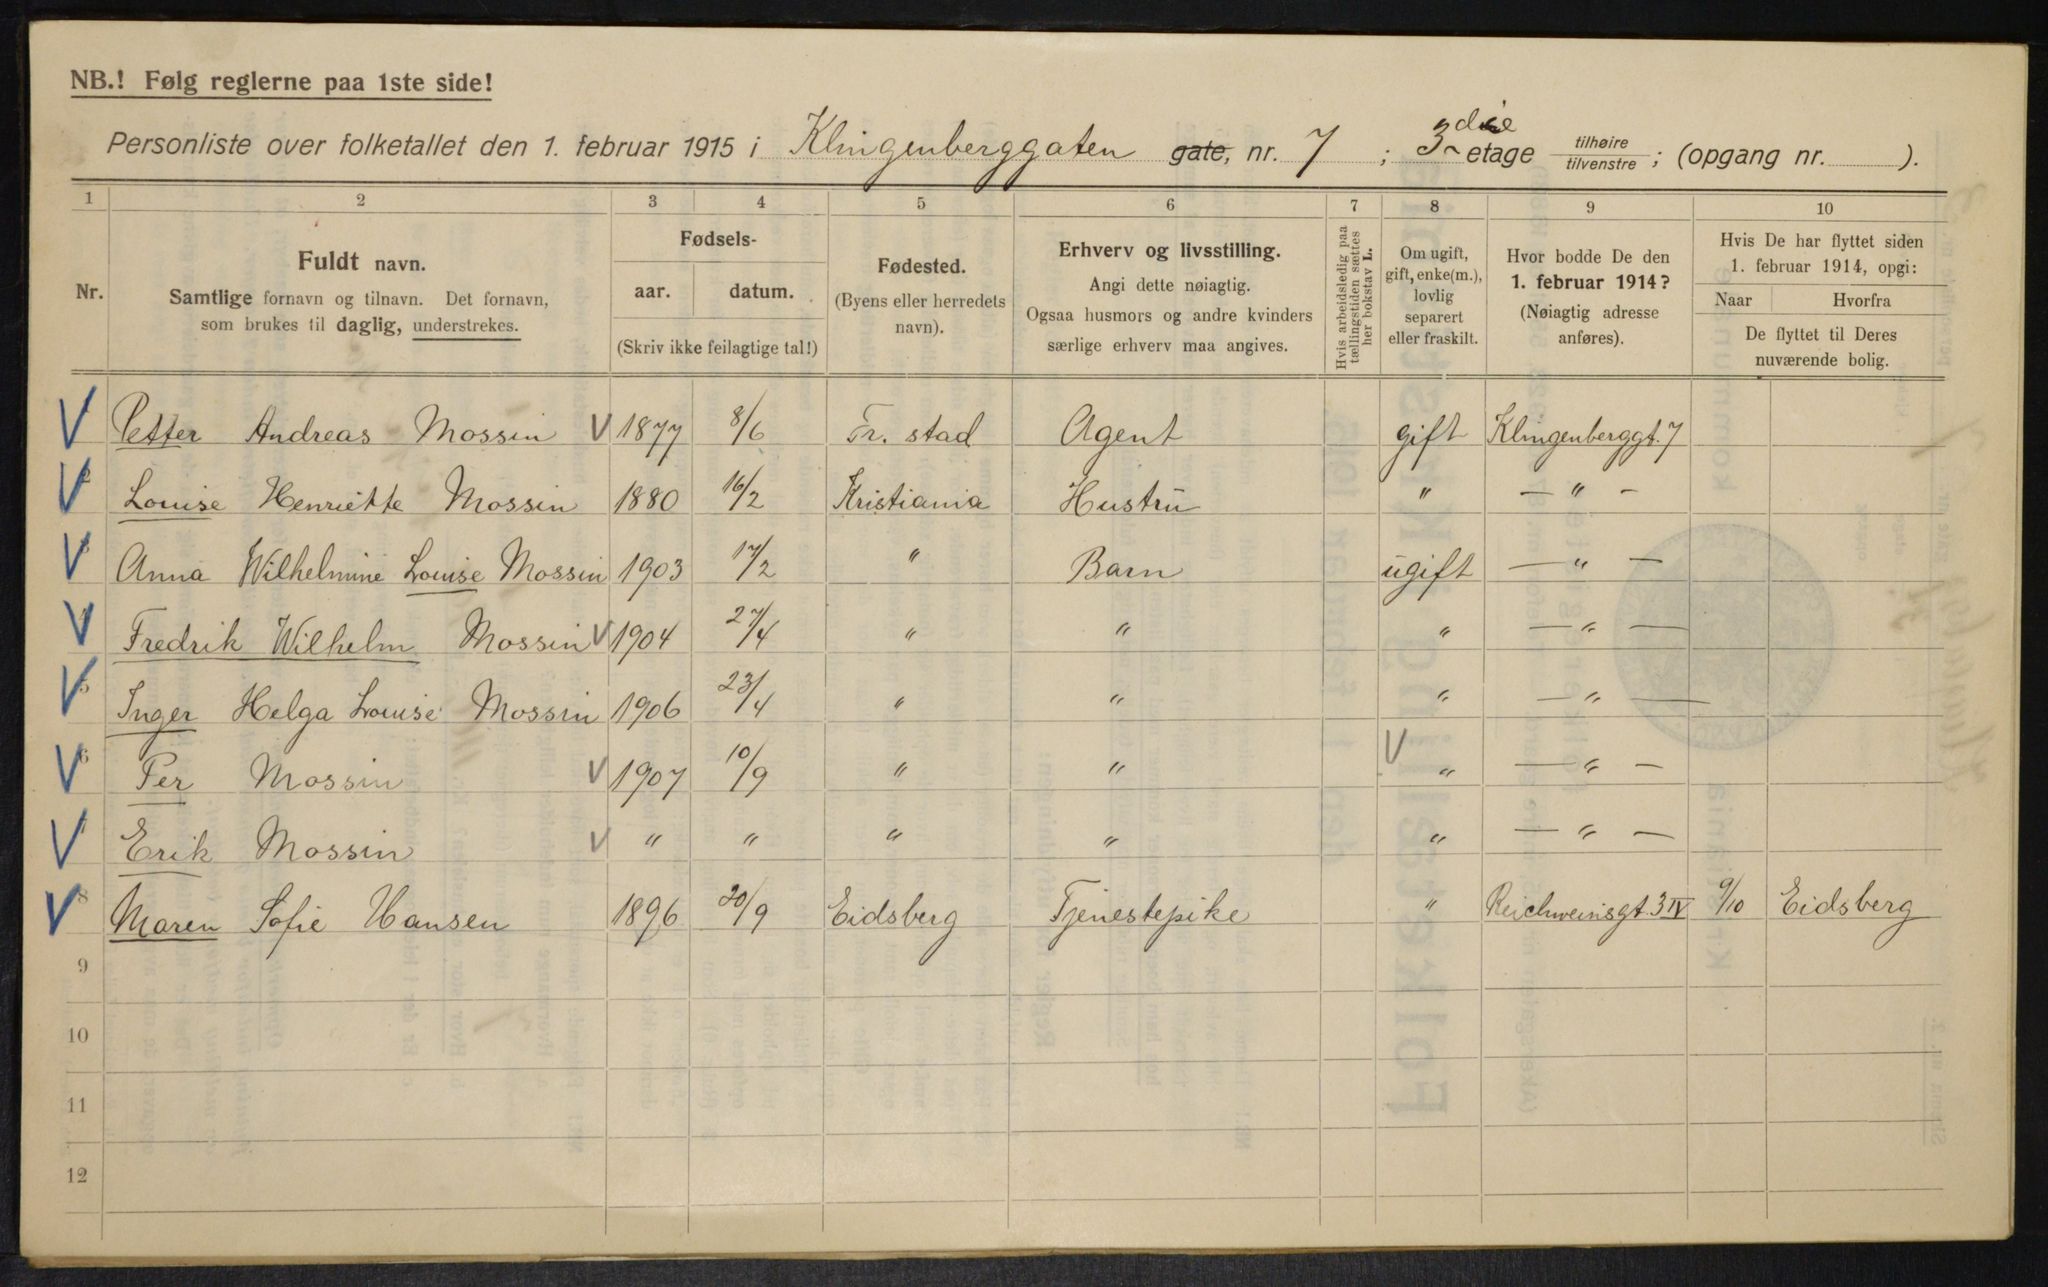 NB.! Følg reglerne paa 1ste side!
Personliste over folketallet den 1. februar 1915 i Klingenberggaten gate, nr. 7 ; 3die etage tilhøire tilvenstre ; (opgang nr. ).
1 2 3 4 5 6 7 8 9 10
Nr.
Fuldt navn.
Samtlige fornavn og tilnavn. Det fornavn,
som brukes til daglig, understrekes.
Fødsels-
aar. datum.
(Skriv ikke feilagtige tal!)
Fødested.
(Byens eller herredets
navn).
Erhverv og livsstilling.
Angi dette nøiagtig.
Ogsaa husmors og andre kvinders
særlige erhverv maa angives.
Hvis arbeidsledig paa
tællingstiden sættes
her bokstav L.
Om ugift,
gift, enke(m.),
lovlig
separert
eller fraskilt.
Hvor bodde De den
1. februar 1914?
(Nøiagtig adresse
anføres).
Hvis De har flyttet siden
1. februar 1914, opgi:
Naar Hvorfra
De flyttet til Deres
nuværende bolig.
Petter Andreas Mossin V 1877 8/6 Fr. stad Agent gift Klingenberggt. 7
2 Louise Henriette Mossin 1880 16/2 Kristiania Hustru " — " —
3 Anna Wilhelmine Louise Mossin 1903 17/2 " Barn ugift — " —
4 Fredrik Wilhelm Mossin V 1904 27/4 " " " — " —
5 Inger Helga Louise Mossin 1906 23/4 " " " — " —
6 Per Mossin V 1907 10/9 " " V " — " —
7 Erik Mossin V " " " " " — " —
8 Maren Sofie Hansen 1896 20/9 Eidsberg Tjenestepike " Reichweinsgt. 3 IV 9/10 Eidsberg
9
10
11
12